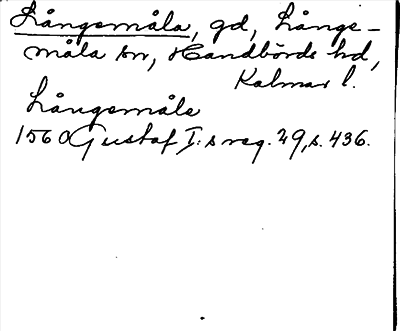 Långsmåla, gd, Långs-
måla sn, Handbörds hd,
Kalmar l.
Långsmåle
1560 Gustaf I:s reg. 29, s. 436.